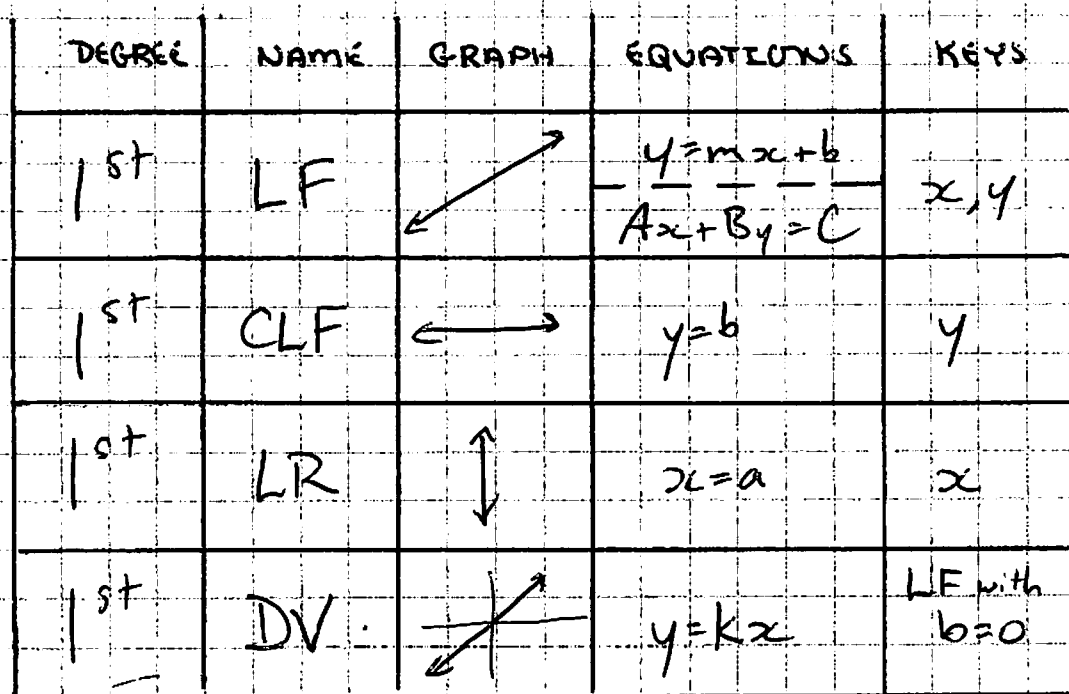 DEGREE NAME GRAPH EQUATIONS KEYS
1st LF y=mx+b x, y
Ax+By=C
1st CLF y=b y
1st LR x=a x
1st DV y=kx LF with
b=0